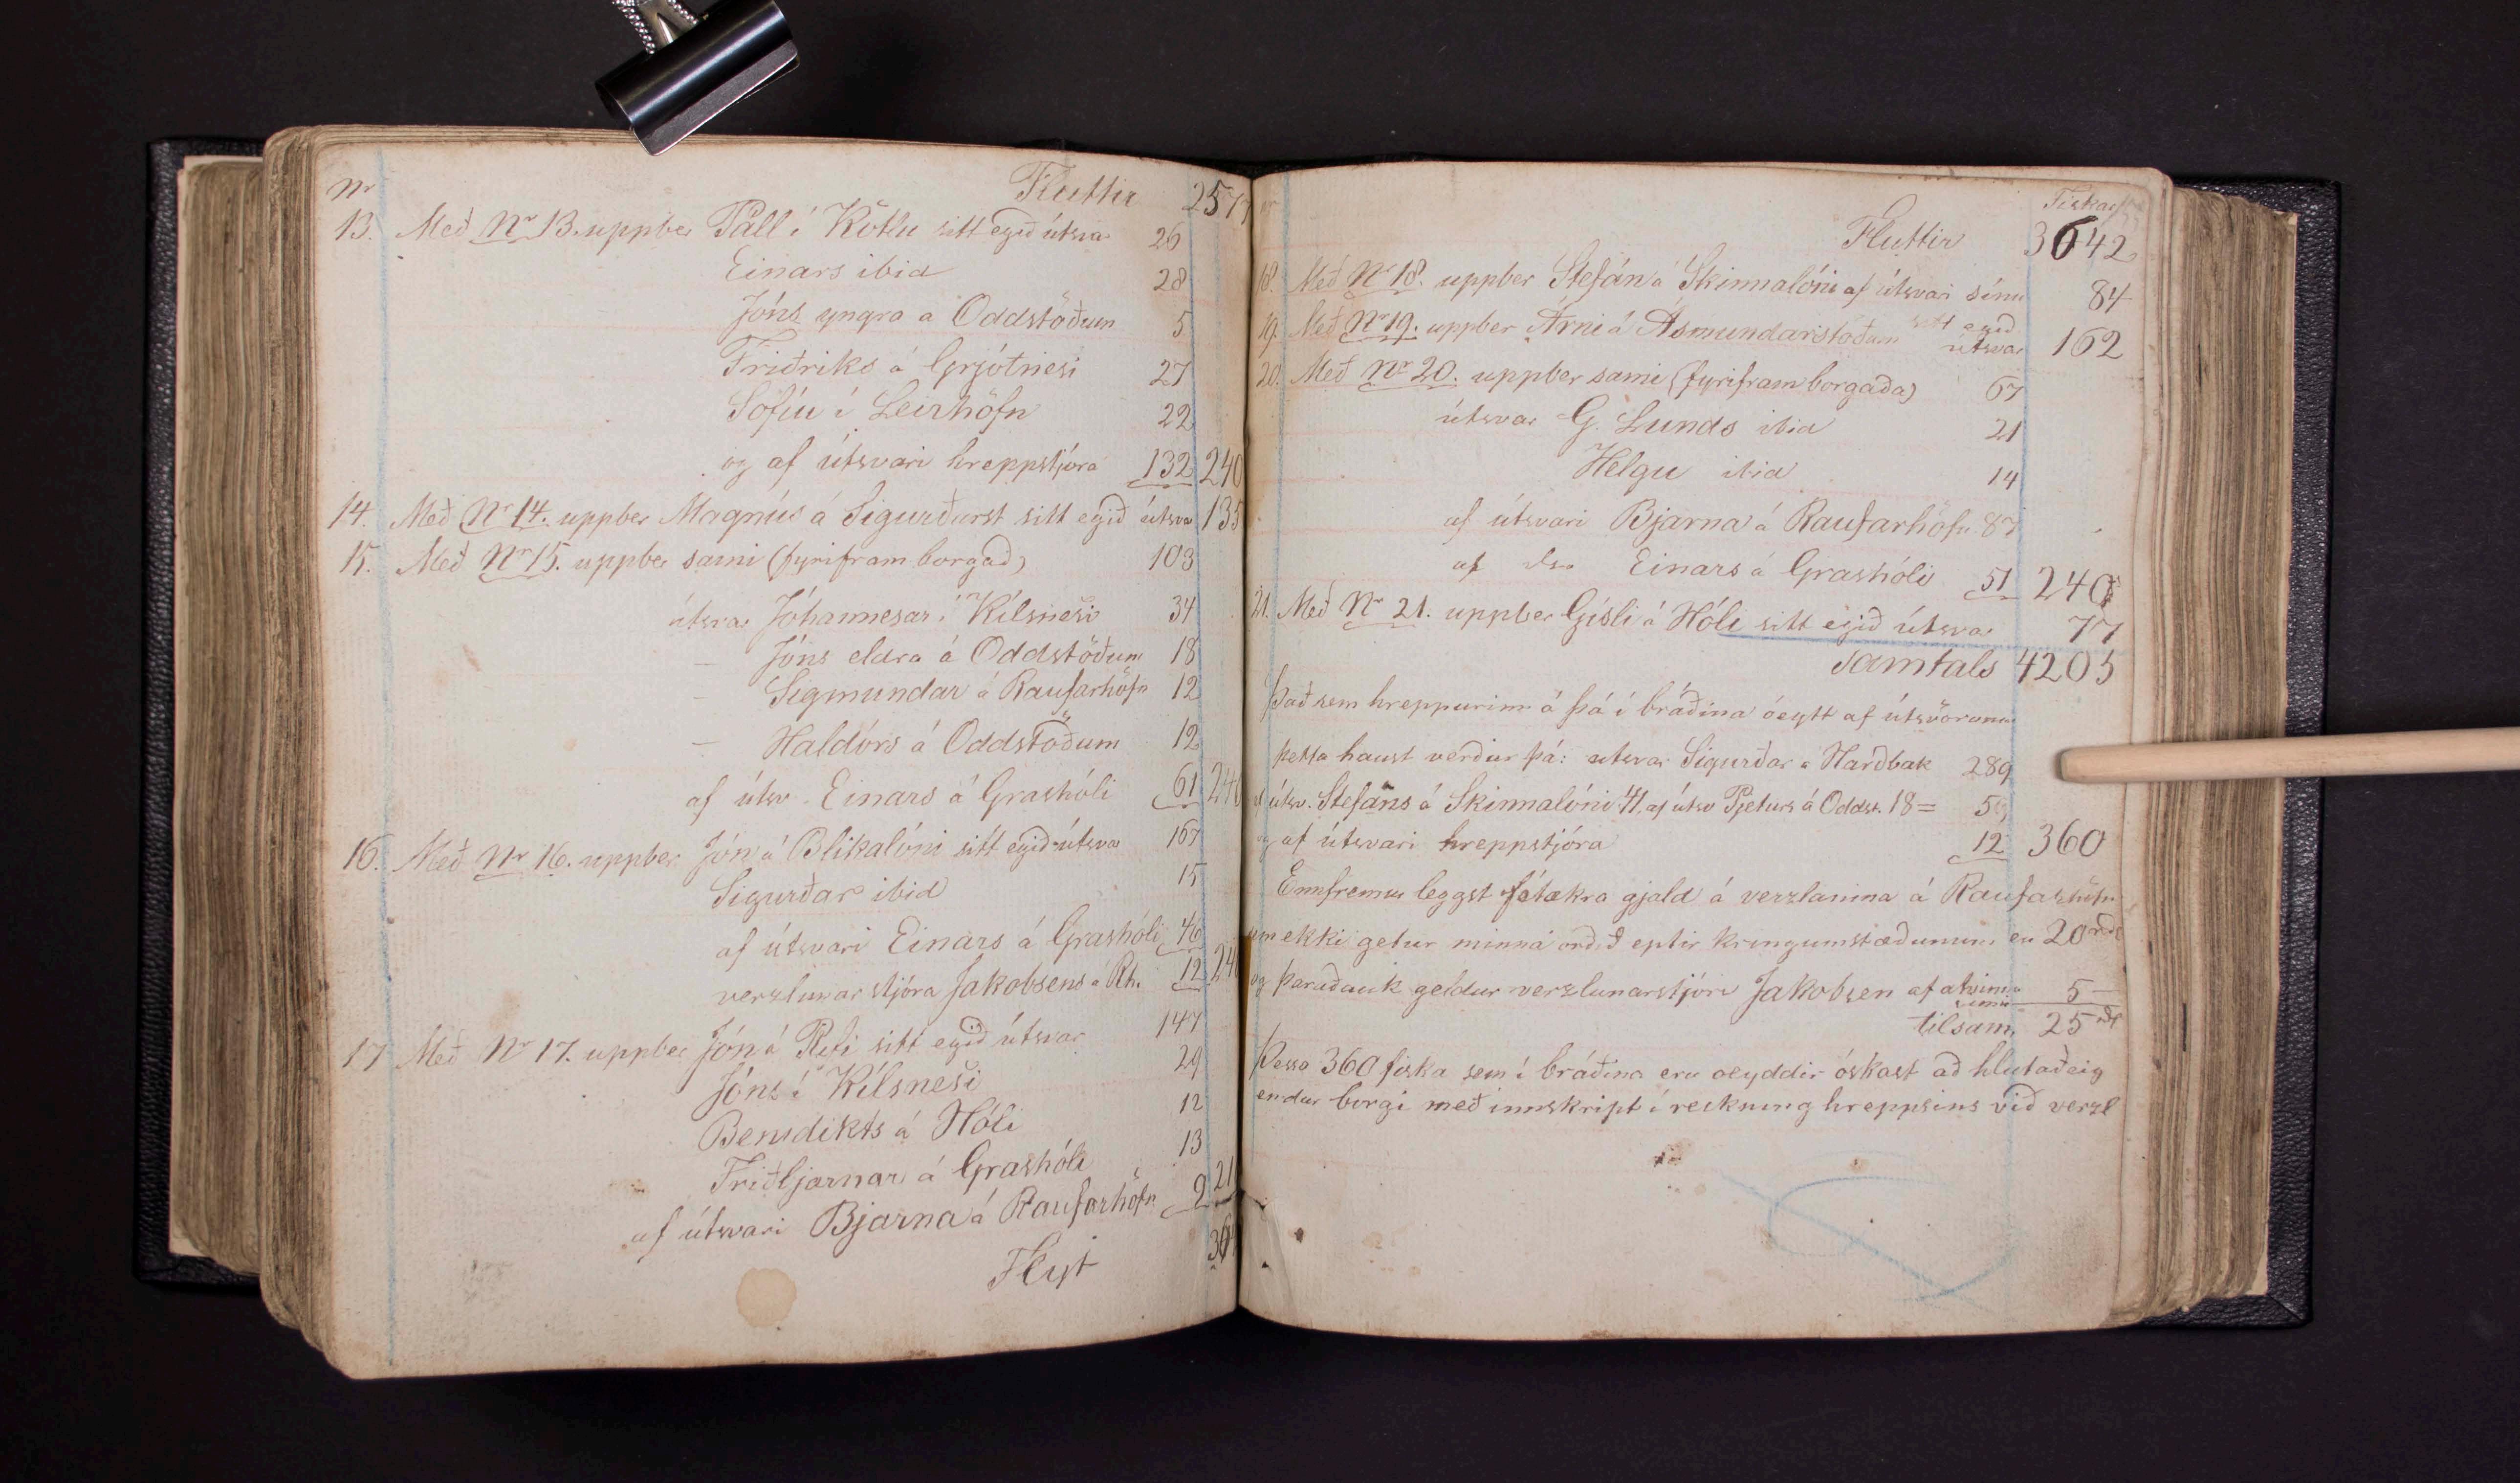 Nr
Fluttir 2577
13. Með Nr 13. uppber Páll í Kötlu sitt egið útsvar 26
Einars ibid 28
Jóns yngra á Oddstöðum 5
Friðriks á Grjótnesi 27
Sofíu í Leirhöfn 22
og af útsvari hreppstjóra 132 240
14. Með Nr 14. uppber Magnús á Sigurðurst sitt egið útsva 135
15. Með Nr 15. uppber sami (fyrifram borgað) 103
útsvar Jóhannesar í Kílsnesi 34
– Jóns eldra á Oddstöðum 18
– Sigmundar á Raufarhöfn 12
– Haldórs á Oddstöðum 12
af útsv. Einars á Grashóli 61 240
16. Með Nr 16. uppber Jón á Blikalóni sitt egið útsvar 167
Sigurðar ibid 15
af útsvari Einars á Grashóli 46
verzlunarstjóra Jakobsens á Rh. 12 240
17 Með Nr 17. uppber Jón á Rifi sitt egið útsvar 147
Jóns í Kílsnesi 29
Benidikts á Hóli 12
Friðbjarnar á Grashóli 13
af útsvari Bjarna á Raufarhöfn 9 21
Flyt 364
nr
Fiskar
Fluttir 3642
18. Með Nr 18. uppber Stefán á Skinnalóni af útsvari sínu 84
19. Með Nr 19. uppber Árni á Ásmundarstöðum sitt egið útsvar 162
20. Með Nr 20. uppber sami (fyrifram borgaða) 67
útsvar G. Lunds ibid 21
Helgu ibid 14
af útsvari Bjarna á Raufarhöfn 87
af dso Einars á Grashóli 51 240
21. Með Nr 21. uppber Gísli á Hóli sitt egið útsvar 77
Samtals 4205
Það sem hreppurinn á þá í bráðina óeytt af útsvörunum
þetta haust verður þá: útsvar Sigurðar á Harðbak 289
af útsv. Stefáns á Skinnalóni 41, af útsv Pjeturs á Oddst. 18 = 59
og af útsvari hreppstjóra 12 360
Ennfremur leggst fátækra gjald á verzlanina á Raufarhöfn
sem ekki getur minna orðið eptir kringumstæðunum en 20 rdl
og þaraðauk geldur verzlunarstjóri Jakobsen af atvinnu sinni 5 –
tilsam. 25 rdl
Þessa 360 fiska sem í bráðina eru óeyddir óskast að hlutaðeig
endur borgi með innskript í reikning hreppsins við verzl